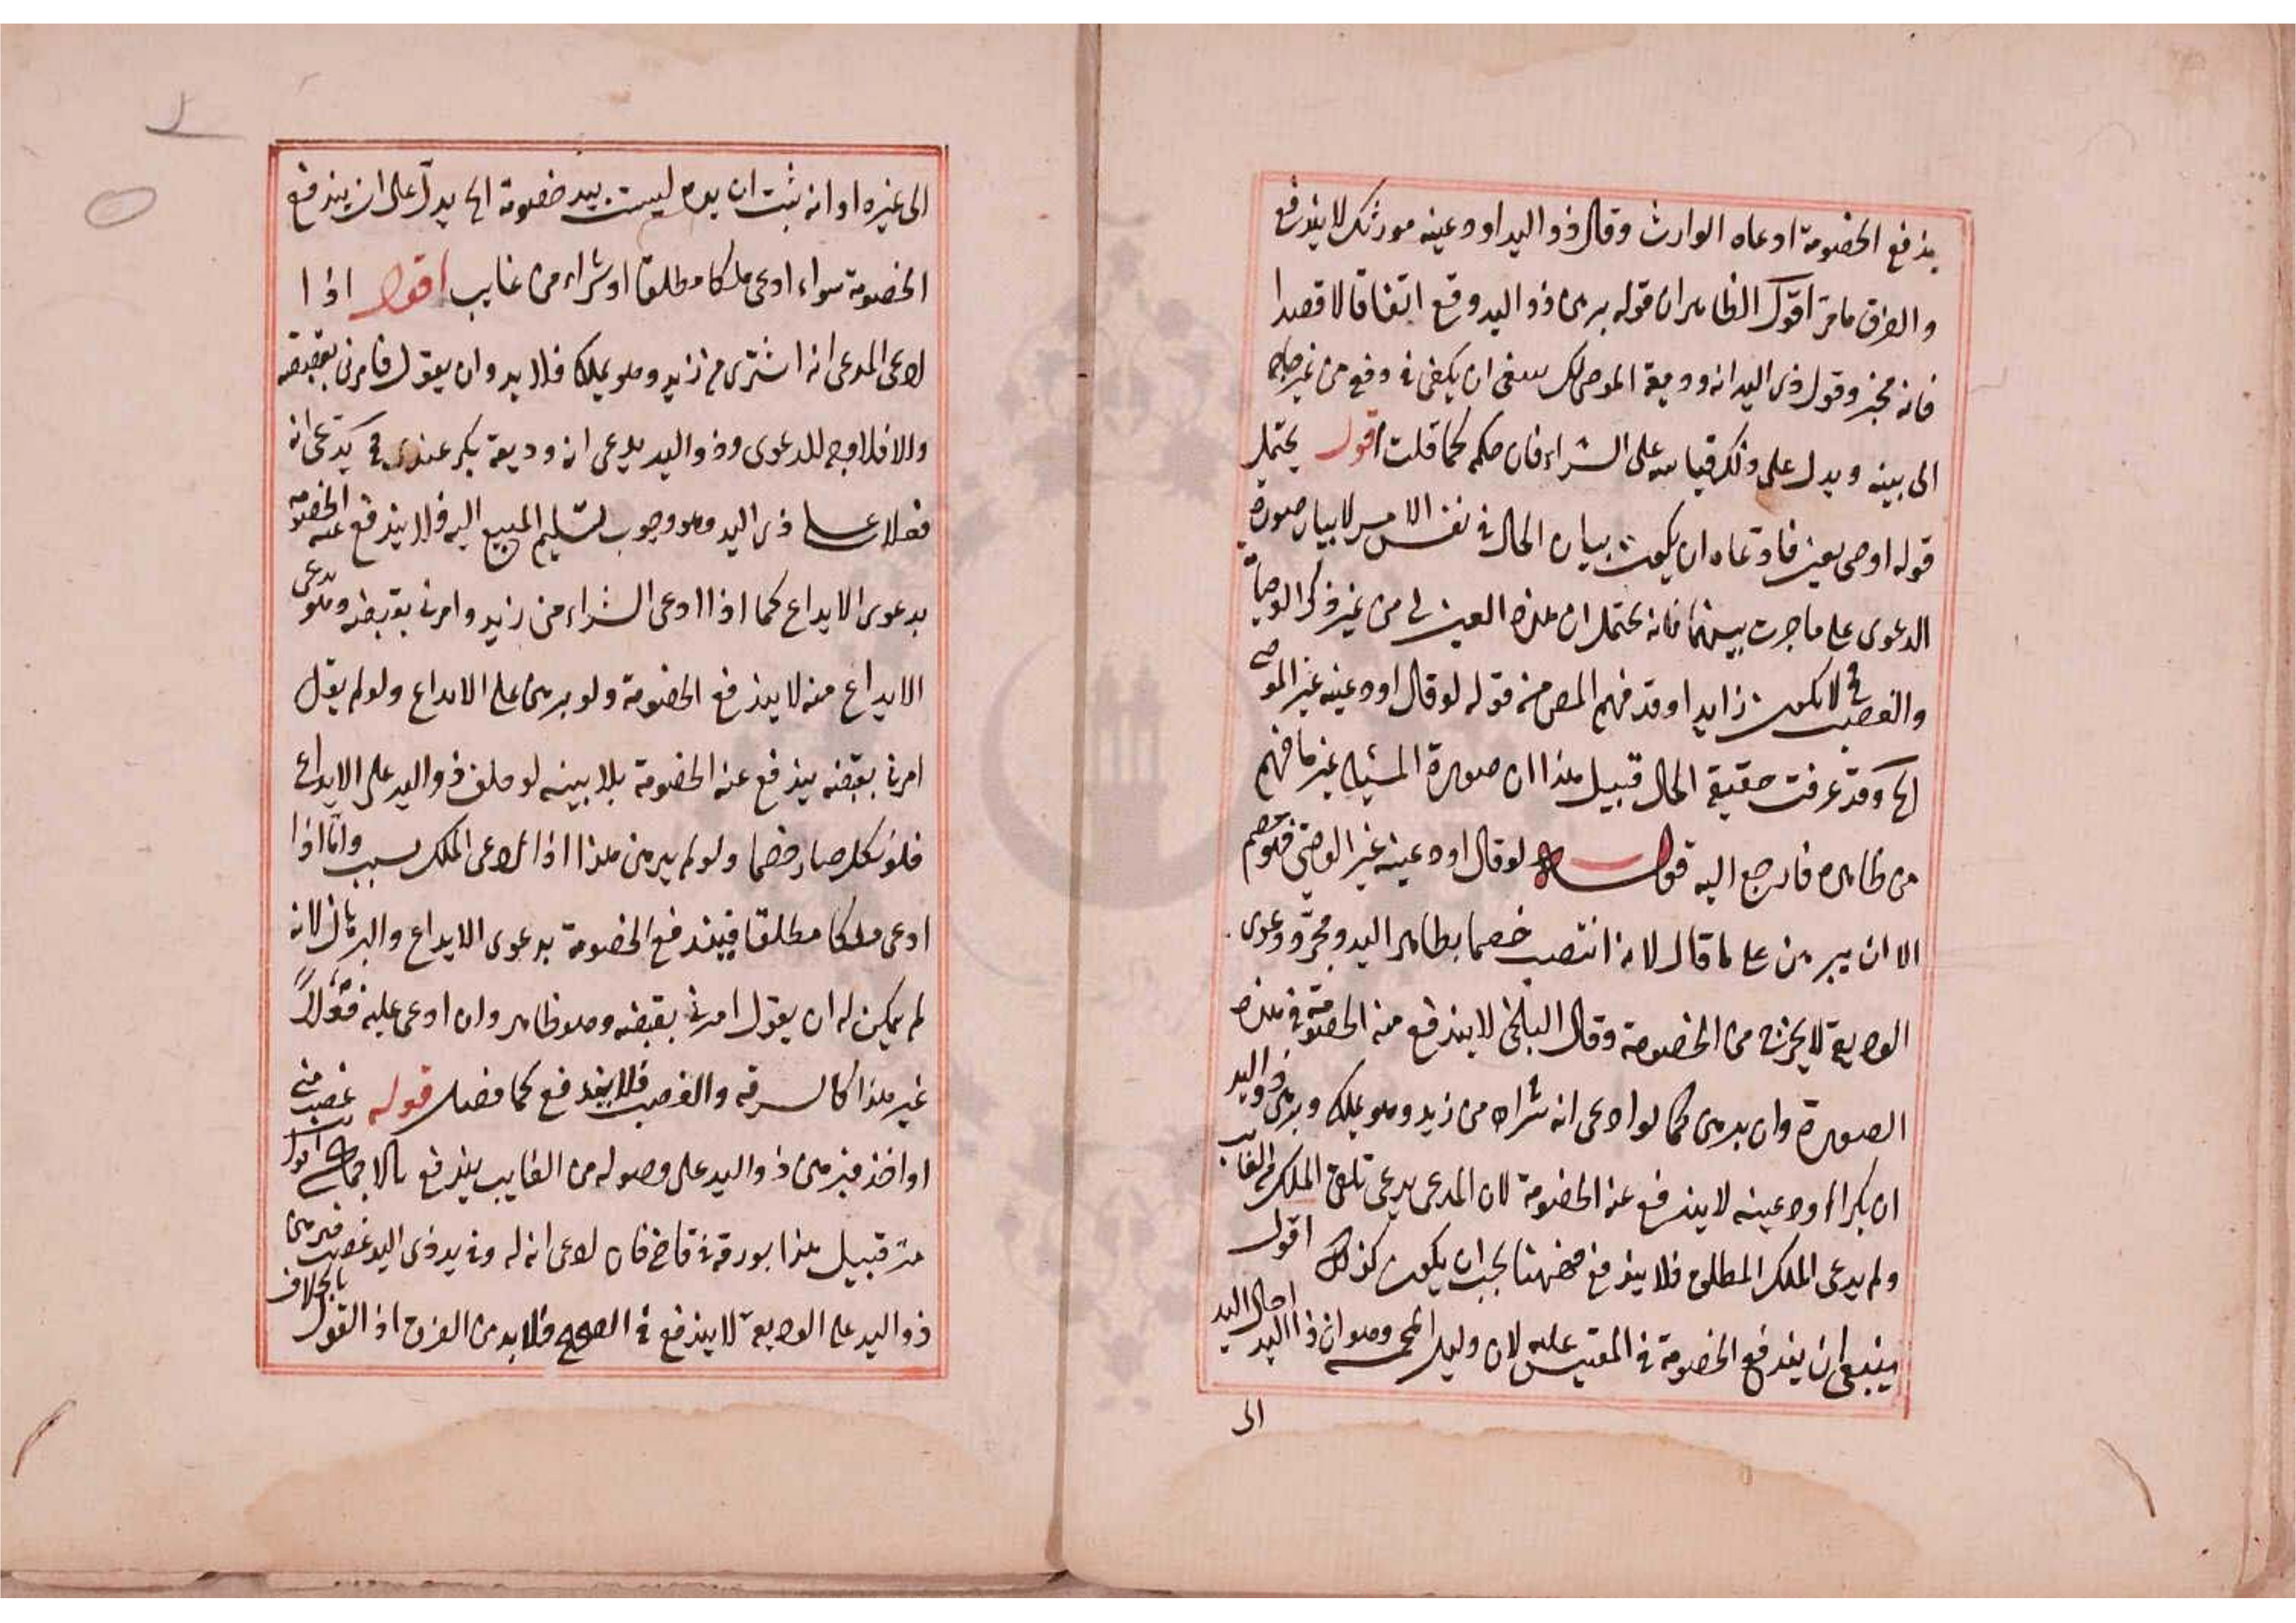 يندفع الخصومة ادعاه الوارث وقال ذو اليد اودعينه مورثك لا يندفع
والفرق مامر اقول الظاهر ان قوله برهن ذو اليد وقع اتفاقا لا قصدا
فانه مخبر وقول ذي اليد انه وديعة الموصي لك ينبغي ان يكفي في دفع من غير حاجة
الى بينه ويدل على ذلك قياسه على الشراء فان حكمه كما قلت اقول يحتمل
قوله اوصى بعين فادعاه ان يكون بيان الحال في نفس الامر لا بيان صورة
الدعوى على ما جرت بينهما فانه يحتمل ان هذه العين لي من غير ذكر الوصاية
والغصب فح لا يكون زايدا وقد فهم المص من قوله لو قال اودعينه غير الموصي
الخ وقد عرفت حقيقة الحال قبيل هذا ان صورة المسئلة غير ما فهم
من ظاهره فارجع اليه قوله لو قال اودعينه غير الوصي فهو خصم
الا ان يبرهن على ما قال لانه انتصب خصما بظاهر اليد ومجرد دعوى
الوديعة لا يخرجه من الخصومة وقال البلخي لا يندفع منه الخصومة في هذه
الصورة وان برهن كما لو ادعى انه شراه من زيد وهو يملكه وبرهن ذو اليد
ان بكرا اودعينه لا يندفع عنه الخصومة لان المدعي يدعي تلقي الملك من الغايب
ولم يدعي الملك المطلق فلا يندفع فههنا يجب ان يكون كذلك اقول
ينبغي ان يندفع الخصومة في المقيس عليه لان وليل الخمسة وهو ان ذا اليد احال اليد
الى
الى غيره او انه ثبت ان يده ليست بيد خصومة الخ يدل على ان يندفع
الخصومة سواء ادعى ملكا مطلقا او شراء من غايب اقول اذا
ادعى المدعي انه اشترى من زيد وهو يملكه فلا بد وان يقول فامرني بقبضه
والا فلا وجه للدعوى وذو اليد يدعي انه وديعة بكر عندي فح يدعي انه
فعلا على ذي اليد وهو وجوب تسليم المبيع اليه فلا يندفع عنه الخصومة
بدعوى الايداع كما اذا ادعى الشراء من زيد وامرني بقبضه وهو يدعي
الايداع منه لا يندفع الخصومة ولو برهن على الايداع ولو لم يقل
امرني بقبضه يندفع عنه الخصومة بلا بينه لو حلف ذو اليد على الايداع
فلو نكل صار خصما ولو لم يبرهن هذا اذا ادعى الملك بسبب واما اذا
ادعى ملكا مطلقا فيندفع الخصومة بدعوى الايداع والبرهان لانه
لم يمكن له ان يقول امرني بقبضه وهو ظاهر وان ادعى عليه فعلا
غير هذا كالسرقه والغصب فلا يندفع كما فصل قوله غصب مني
او اخذ فبرهن ذو اليد على وصوله من الغايب يندفع بالاجماع اقول
مر قبيل هذا بورقة في قاضيخان ادعى انه له وفي يد ذي اليد غصب فبرهن
ذو اليد على الوديعة لا يندفع في الصحيح فلا بد من الفرق اذ القول بالخلاف